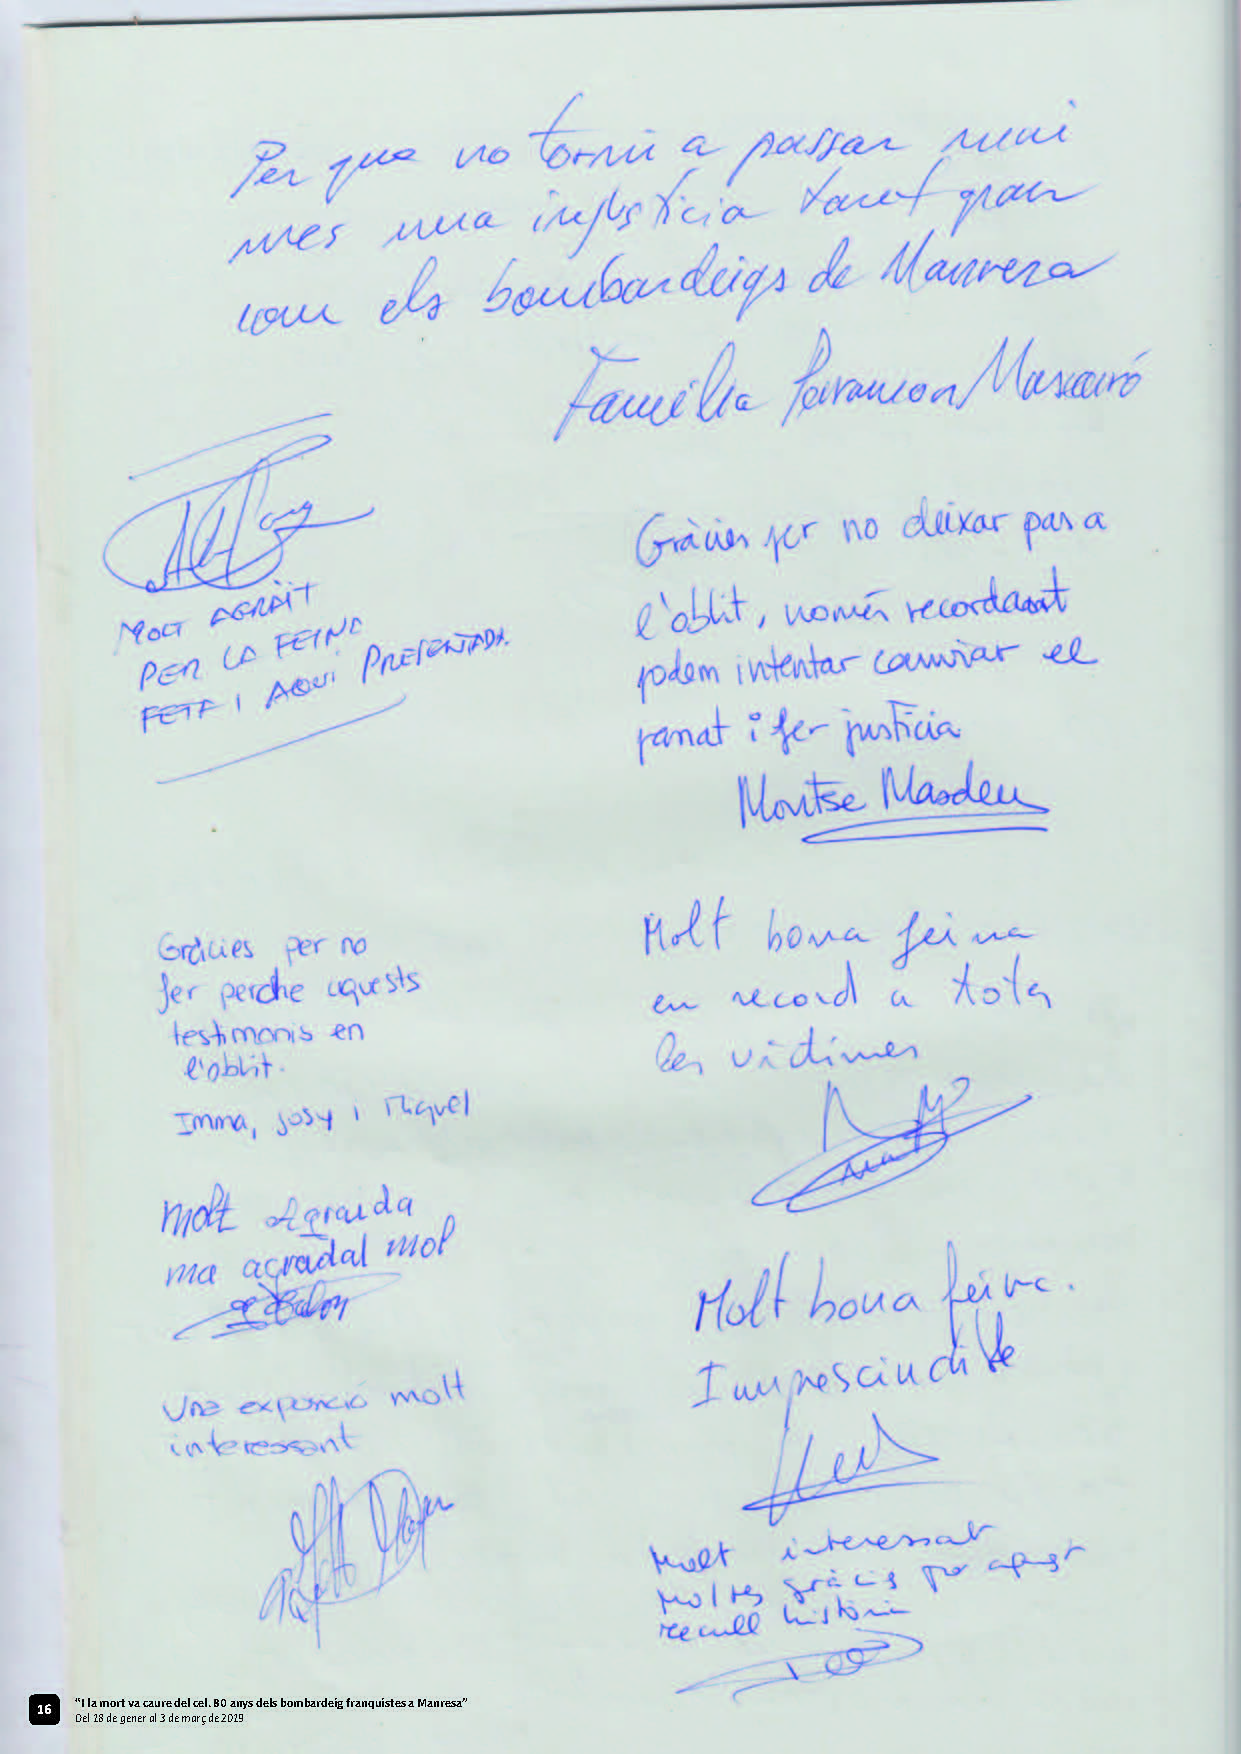 Per que no torni a passar mai
mes una injusticia tant gran
com els bombardeigs de Manresa
Familia Mascaró
MOLT AGRAÏT
PER LA FEINA
FETA I AQUI PRESENTADA.
Gràcies per no deixar pas a
l'oblit, només recordant
podem intentar canviar el
passat i fer justícia
Montse Masdeu
Gràcies per no
fer perdre aquests
testimonis en
l'oblit.
Imma, Josy i Miquel
Molt bona feina
en record a totes
les víctimes
Molt Agraida
ma agradal mol
Molt bona feina.
Imprescindible
Una exposició molt
interessant
Molt interessat
Moltes gràcis per aquest
recull històric
16
"I la mort va caure del cel. 80 anys dels bombardeig franquistes a Manresa"
Del 18 de gener al 3 de març de 2019